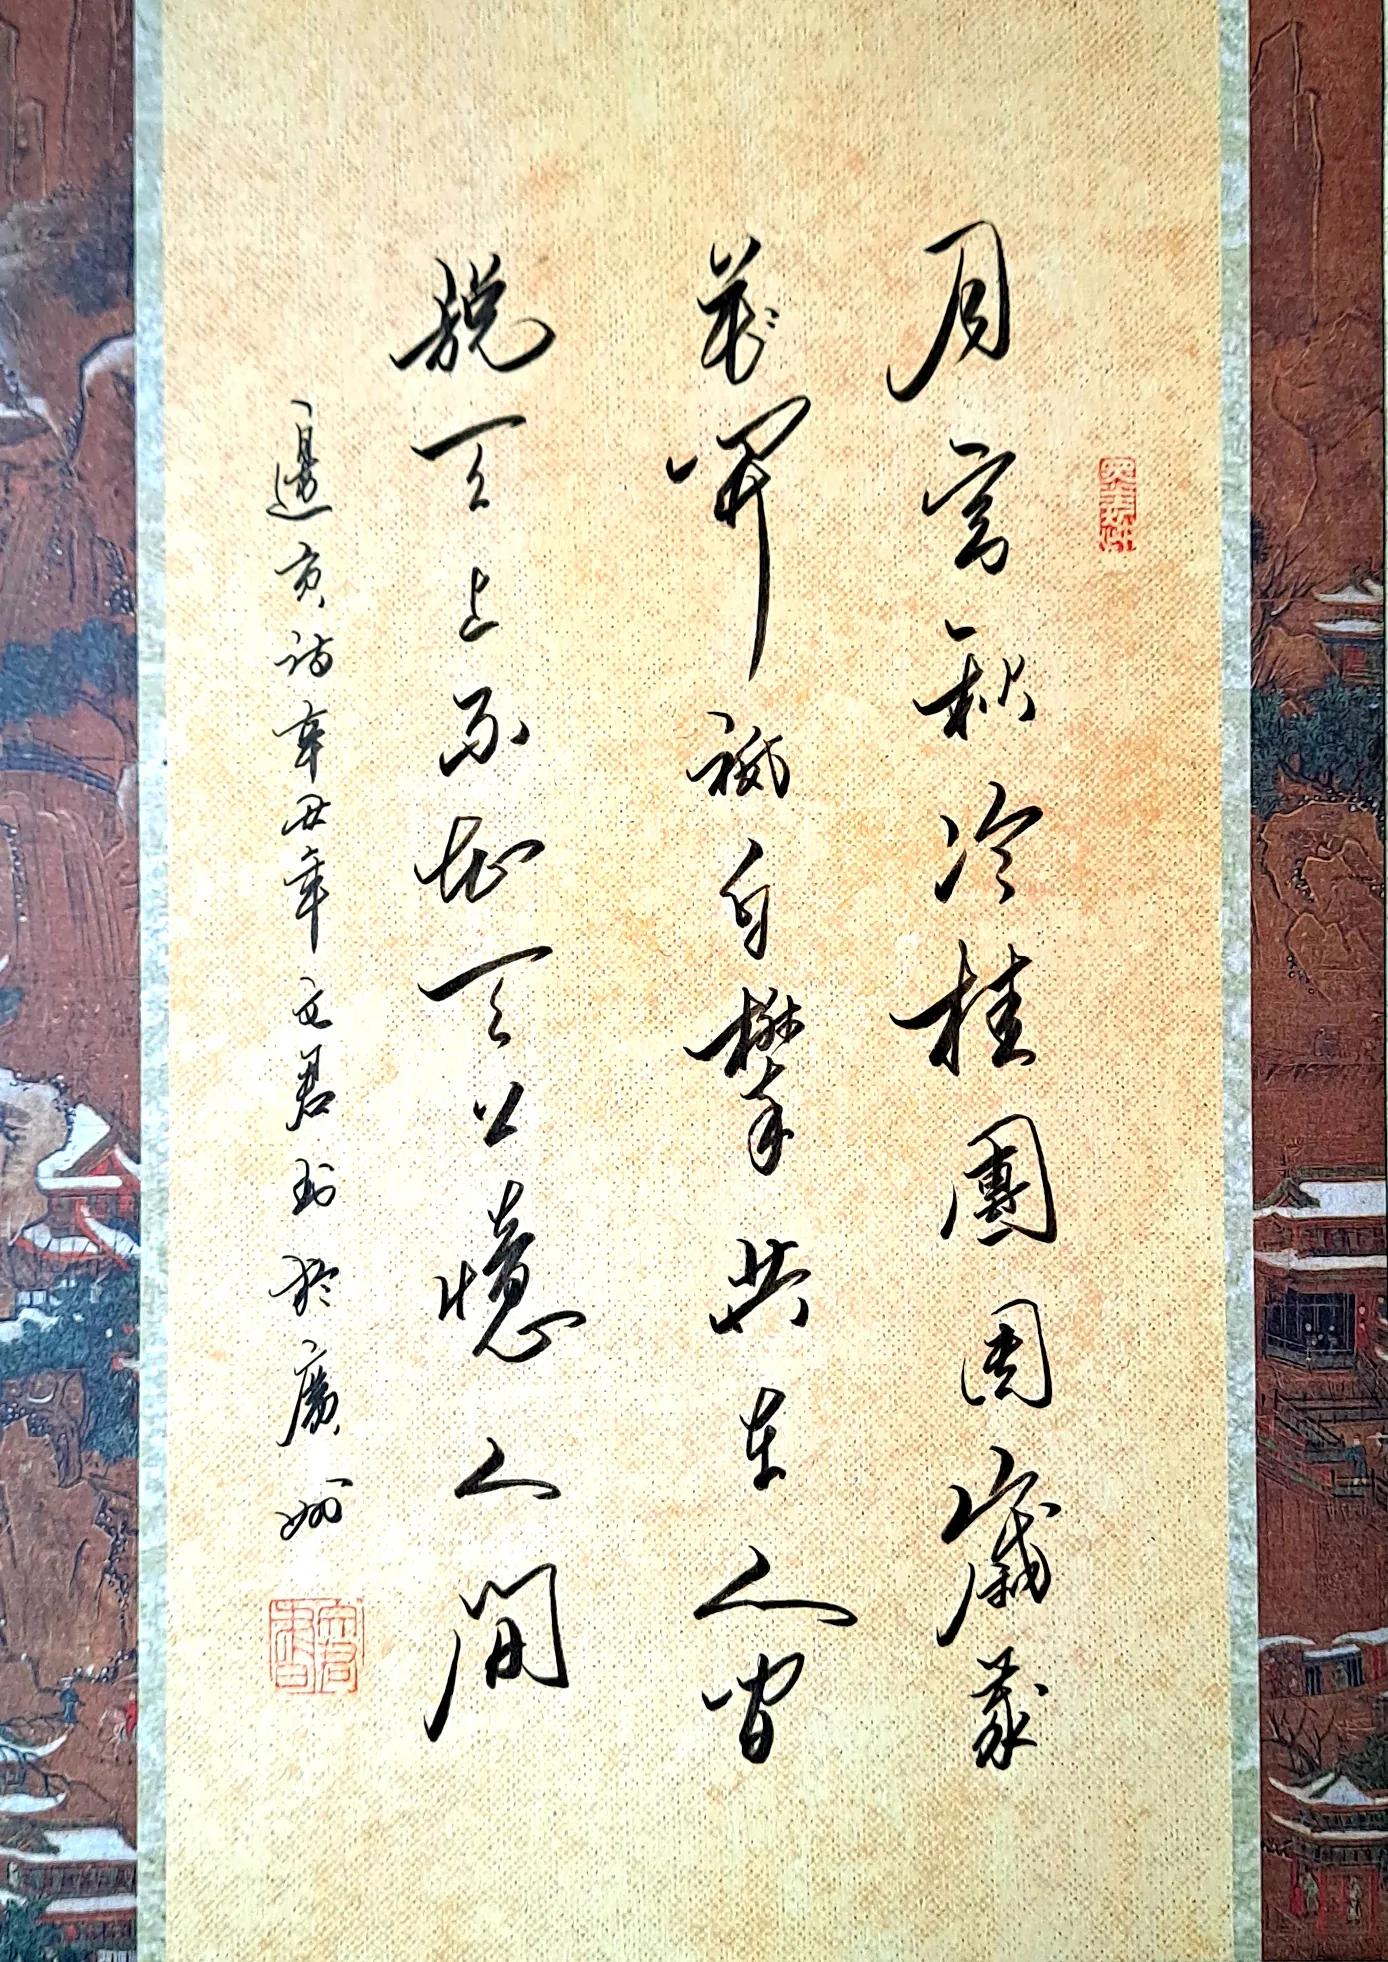 月宮秋冷桂團團歲歲
花開祇自攀共在人間
說天上不知天上憶人間
邊貢詩辛丑年文君書於廣州